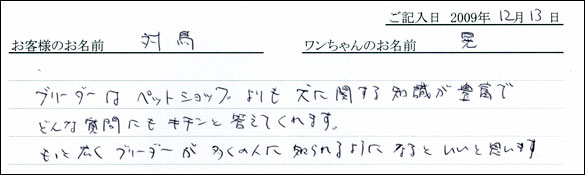 ご記入日 2009年 12月 13日
お客様のお名前 対馬 ワンちゃんのお名前 晃
ブリーダーは ペットショップよりも 犬に関する知識が豊富で
どんな質問にも キチンと答えてくれます。
もっと広く ブリーダーが 多くの人に 知られるように なると いいと思います